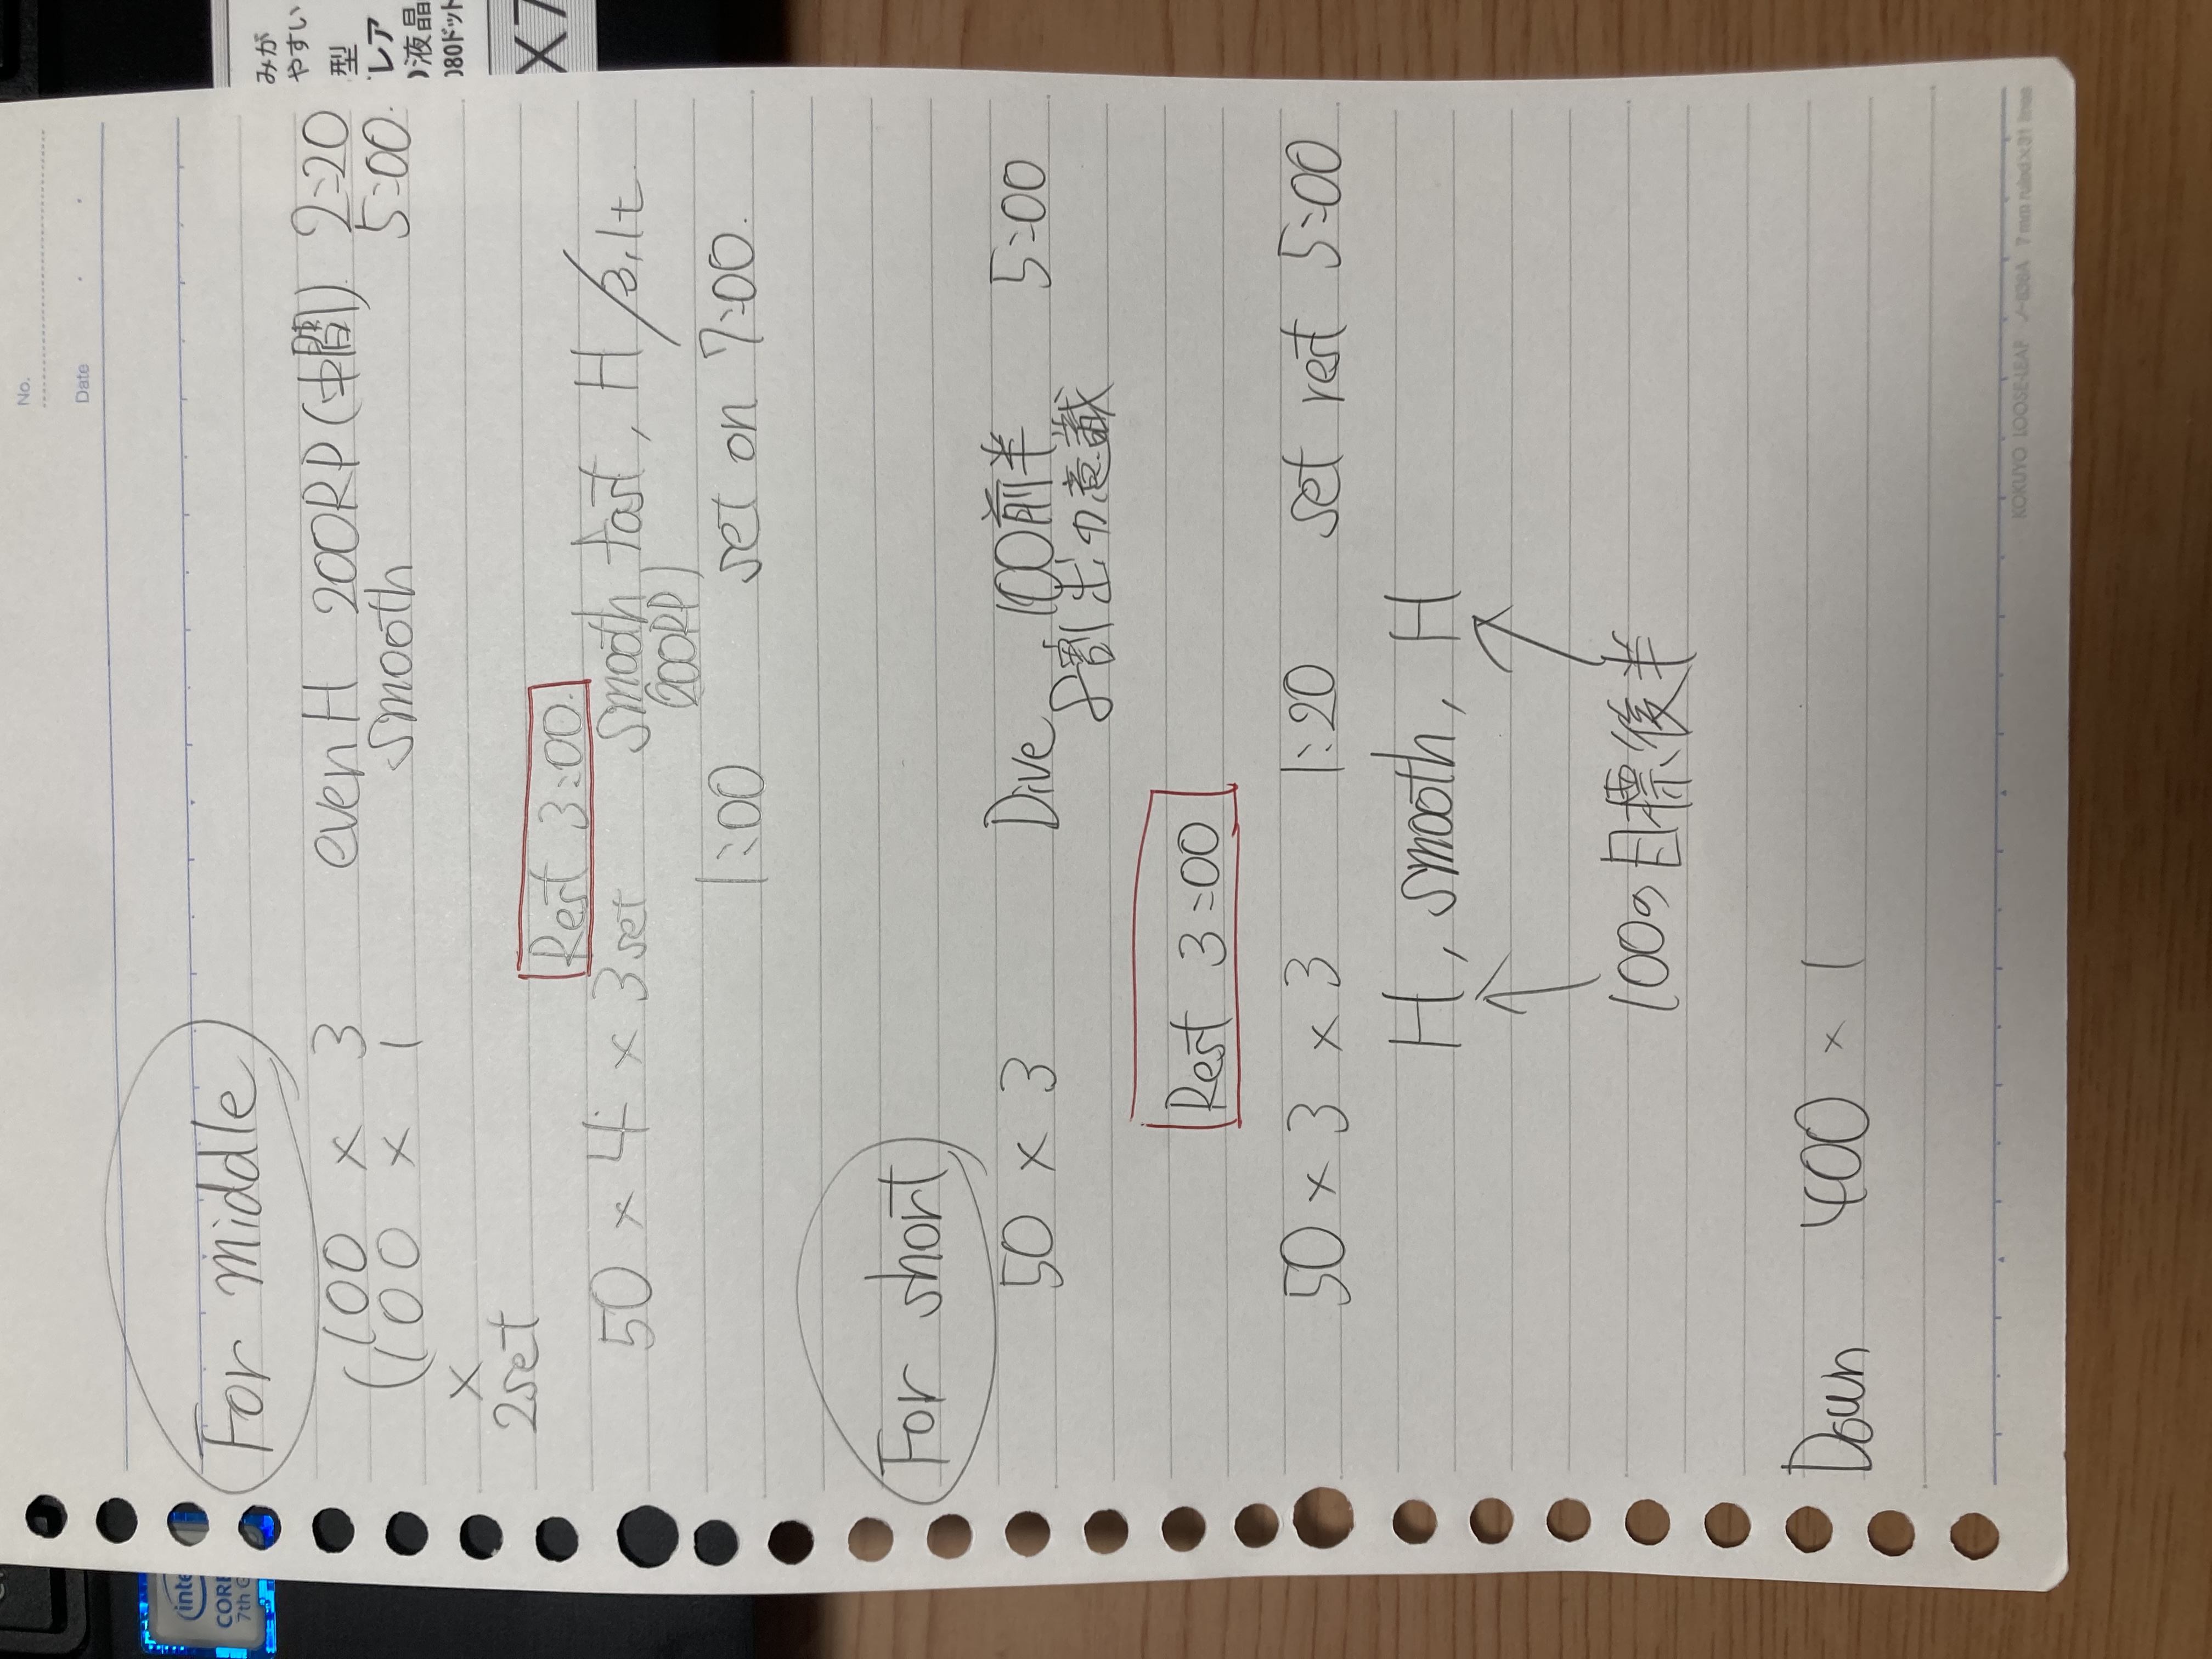 みが
やすい
型
レア
液晶
080ドット
X7
No.
Date
For middle
(100 × 3 even H 200RP(中間) 2:20
(100 × 1 smooth 5:00.
×
2set
Rest 3:00.
50 × 4 × 3set smooth fast, H /3,1t
(200RP)
1:00 set on 7:00.
For short
50 × 3 Dive 100前半 5:00
8割出力意識
Rest 3:00
50 × 3 × 3 1:20 set rest 5:00
H, smooth, H
100の目標後半
Down 400 × 1
KOKUYO LOOSE-LEAF ノ-836A 7 mm ruled×31 lines
inte
CORE
7th G